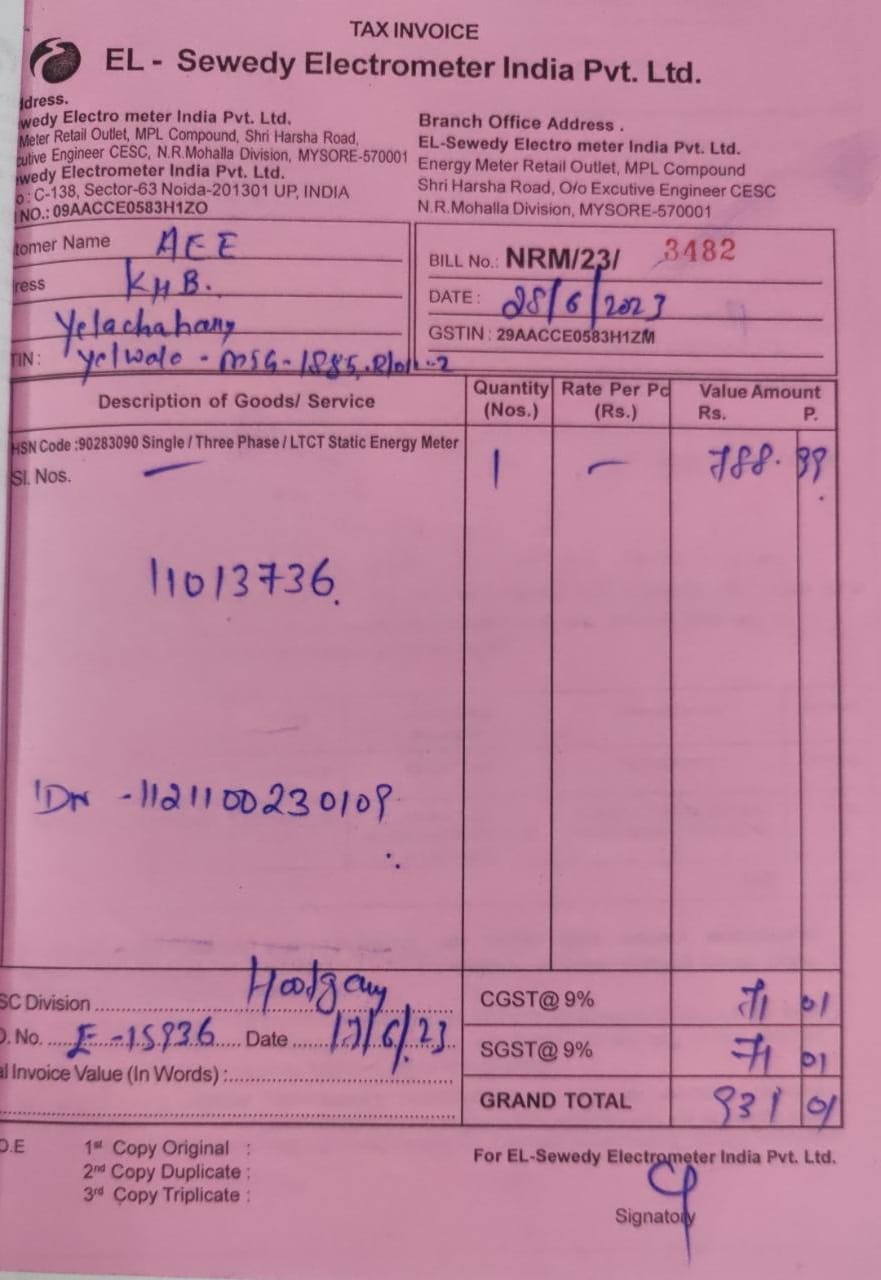 TAX INVOICE
EL - Sewedy Electrometer India Pvt. Ltd.
dress.
wedy Electro meter India Pvt. Ltd.
Meter Retail Outlet, MPL Compound, Shri Harsha Road,
cutive Engineer CESC, N.R.Mohalla Division, MYSORE-570001
wedy Electrometer India Pvt. Ltd.
o : C-138, Sector-63 Noida-201301 UP, INDIA
NO.: 09AACCE0583H1ZO
Branch Office Address .
EL-Sewedy Electro meter India Pvt. Ltd.
Energy Meter Retail Outlet, MPL Compound
Shri Harsha Road, O/o Excutive Engineer CESC
N.R.Mohalla Division, MYSORE-570001
tomer Name AEE
ress KHB.
Yelachahany
TIN :
BILL No.: NRM/23/ 3482
DATE : 28/6/2023
GSTIN : 29AACCE0583H1ZM
Description of Goods/ Service Quantity (Nos.) Rate Per Pc (Rs.) Value Amount Rs. P.
HSN Code :90283090 Single / Three Phase / LTCT Static Energy Meter
Sl. Nos. — 1 — 788. 99
11013736.
IDN -1121100230109
SC Division Hootgany
O. No. E-15936 Date 17/6/23
al Invoice Value (In Words) :
CGST@ 9% 71 01
SGST@ 9% 71 01
GRAND TOTAL 931 01
O.E 1st Copy Original :
2nd Copy Duplicate :
3rd Copy Triplicate :
For EL-Sewedy Electrometer India Pvt. Ltd.
Signatory